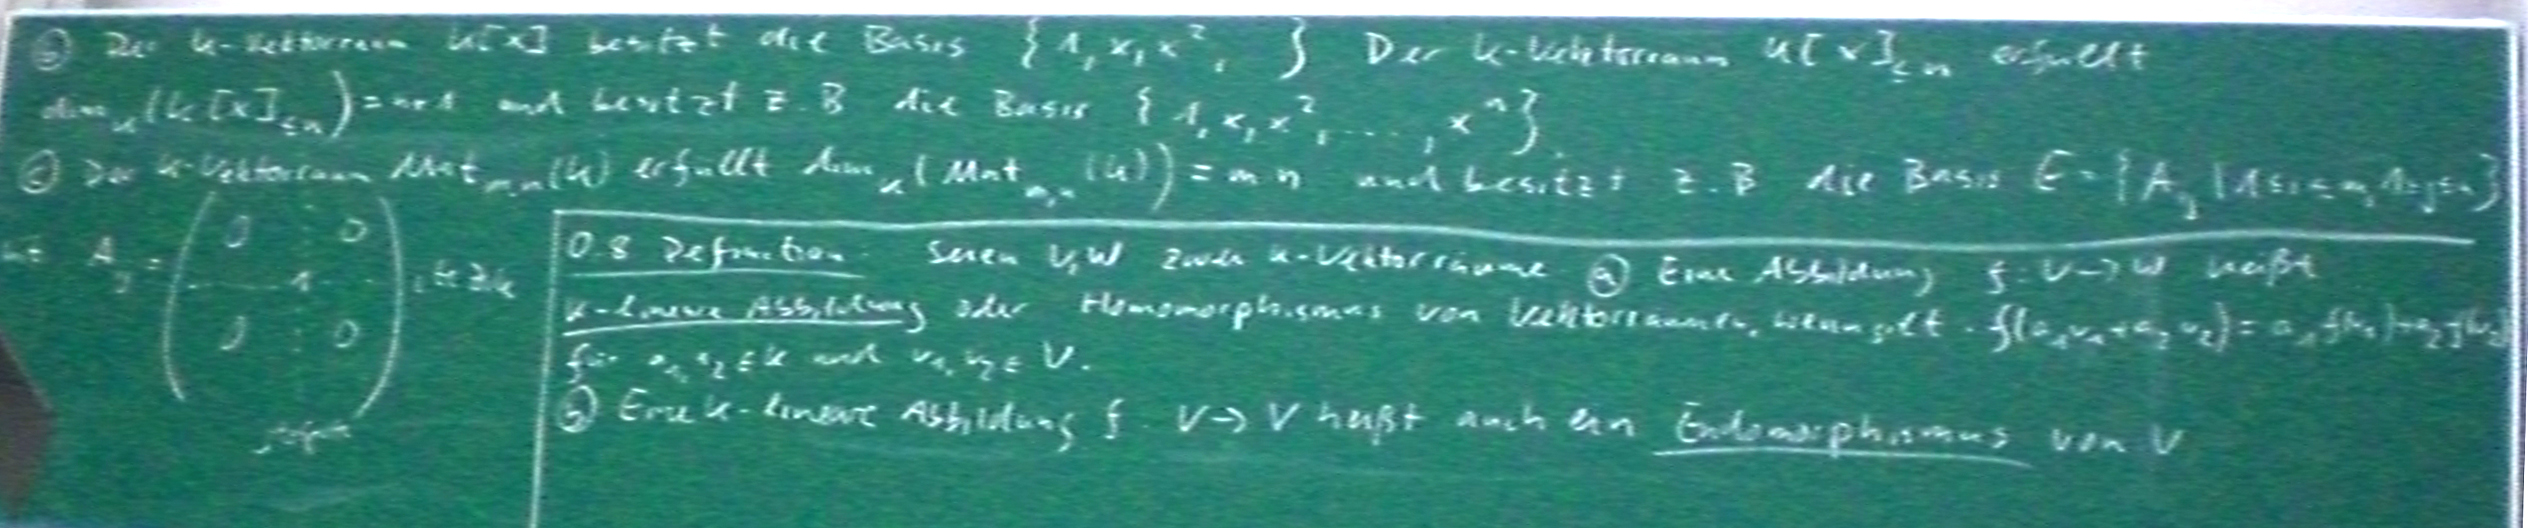 ⓑ Der K-Vektorraum K[x] besitzt die Basis {1, x, x², } Der K-Vektorraum K[x]≤n erfüllt
dim_K(K[x]≤n) = n+1 und besitzt z.B die Basis {1, x, x², ...., xⁿ}.
ⓒ Der K-Vektorraum Mat_m,n(K) erfüllt dim_K(Mat_m,n(K)) = m n und besitzt z.B die Basis E = {A_ij | 1≤i≤m, 1≤j≤n}
mit A_ij = ( 0 0
1 , i-te Zeile
0 0 )
j-te Spalte
0.8 Definition. Seien V, W zwei K-Vektorräume. ⓐ Eine Abbildung f: V→W heißt
K-lineare Abbildung oder Homomorphismus von Vektorräumen, wenn gilt. f(a₁v₁+a₂v₂) = a₁f(v₁)+a₂f(v₂)
für a₁, a₂ ∈ K und v₁, v₂ ∈ V.
ⓑ Eine K-lineare Abbildung f: V→V heißt auch ein Endomorphismus von V